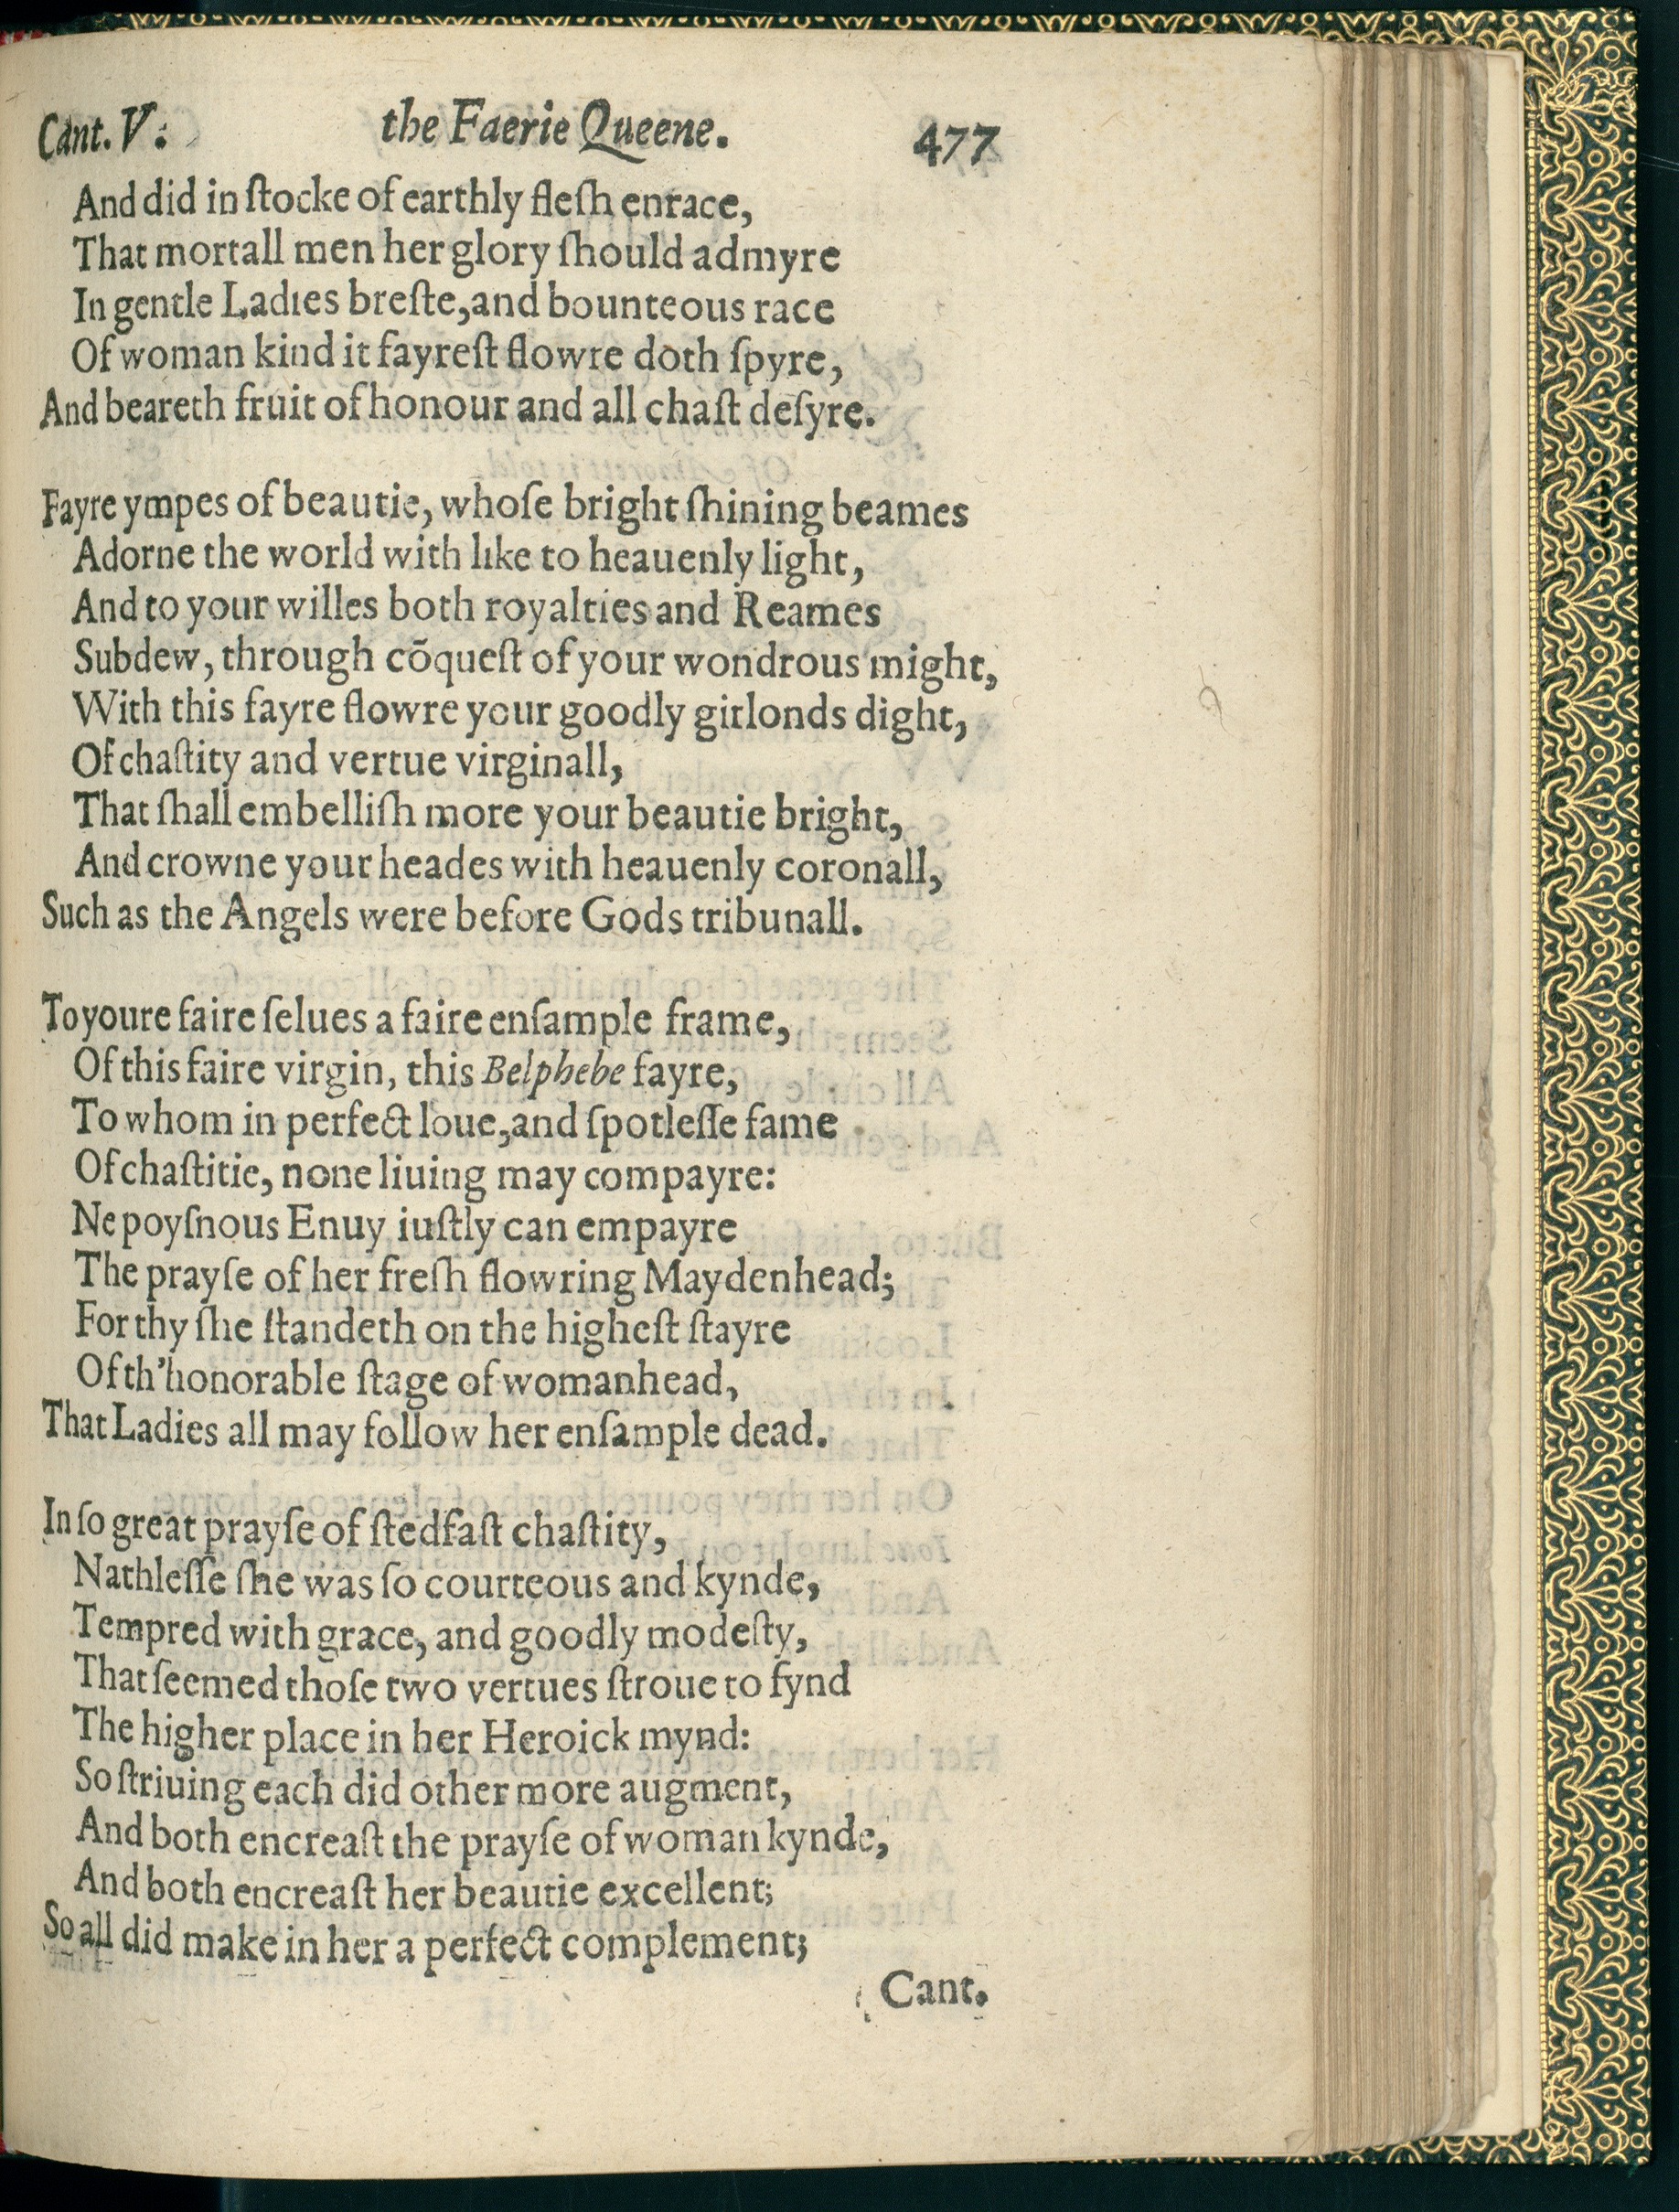 Cant. V.	the Faerie Queene.	477
And did in ſtocke of earthly fleſh enrace,
That mortall men her glory ſhould admyre
In gentle Ladies breſte, and bounteous race
Of woman kind it fayreſt flowre doth ſpyre,
And beareth fruit of honour and all chaſt deſyre.
Fayre ympes of beautie, whoſe bright ſhining beames
Adorne the world with like to heauenly light,
And to your willes both royalties and Reames
Subdew, through cõqueſt of your wondrous might,
With this fayre flowre your goodly girlonds dight,
Of chaſtity and vertue virginall,
That ſhall embelliſh more your beautie bright,
And crowne your heades with heauenly coronall,
Such as the Angels were before Gods tribunall.
To youre faire ſelues a faire enſample frame,
Of this faire virgin, this Belphebe fayre,
To whom in perfect loue, and ſpotleſſe fame
Of chaſtitie, none liuing may compayre:
Ne poyſnous Enuy iuſtly can empayre
The prayſe of her freſh flowring Maydenhead;
For thy ſhe ſtandeth on the higheſt ſtayre
Of th'honorable ſtage of womanhead,
That Ladies all may follow her enſample dead.
In ſo great prayſe of ſtedfaſt chaſtity,
Nathleſſe ſhe was ſo courteous and kynde,
Tempred with grace, and goodly modeſty,
That ſeemed thoſe two vertues ſtroue to fynd
The higher place in her Heroick mynd:
So ſtriuing each did other more augment,
And both encreaſt the prayſe of woman kynde,
And both encreaſt her beautie excellent;
So all did make in her a perfect complement;
Cant.